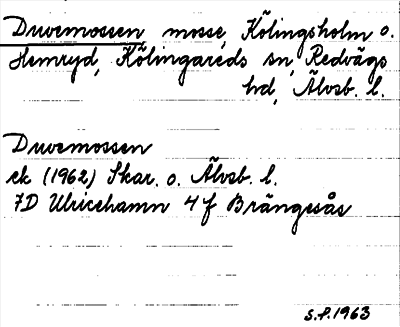 Duvemossen, mosse, Kölingsholm o.
Hemryd, Kölingareds sn, Redvägs
hd, Älvsb. l.
Duvemossen
ek (1962) Skar. o. Älvsb. l.
7D Ulricehamn 4 f Brängesås
S.P. 1963